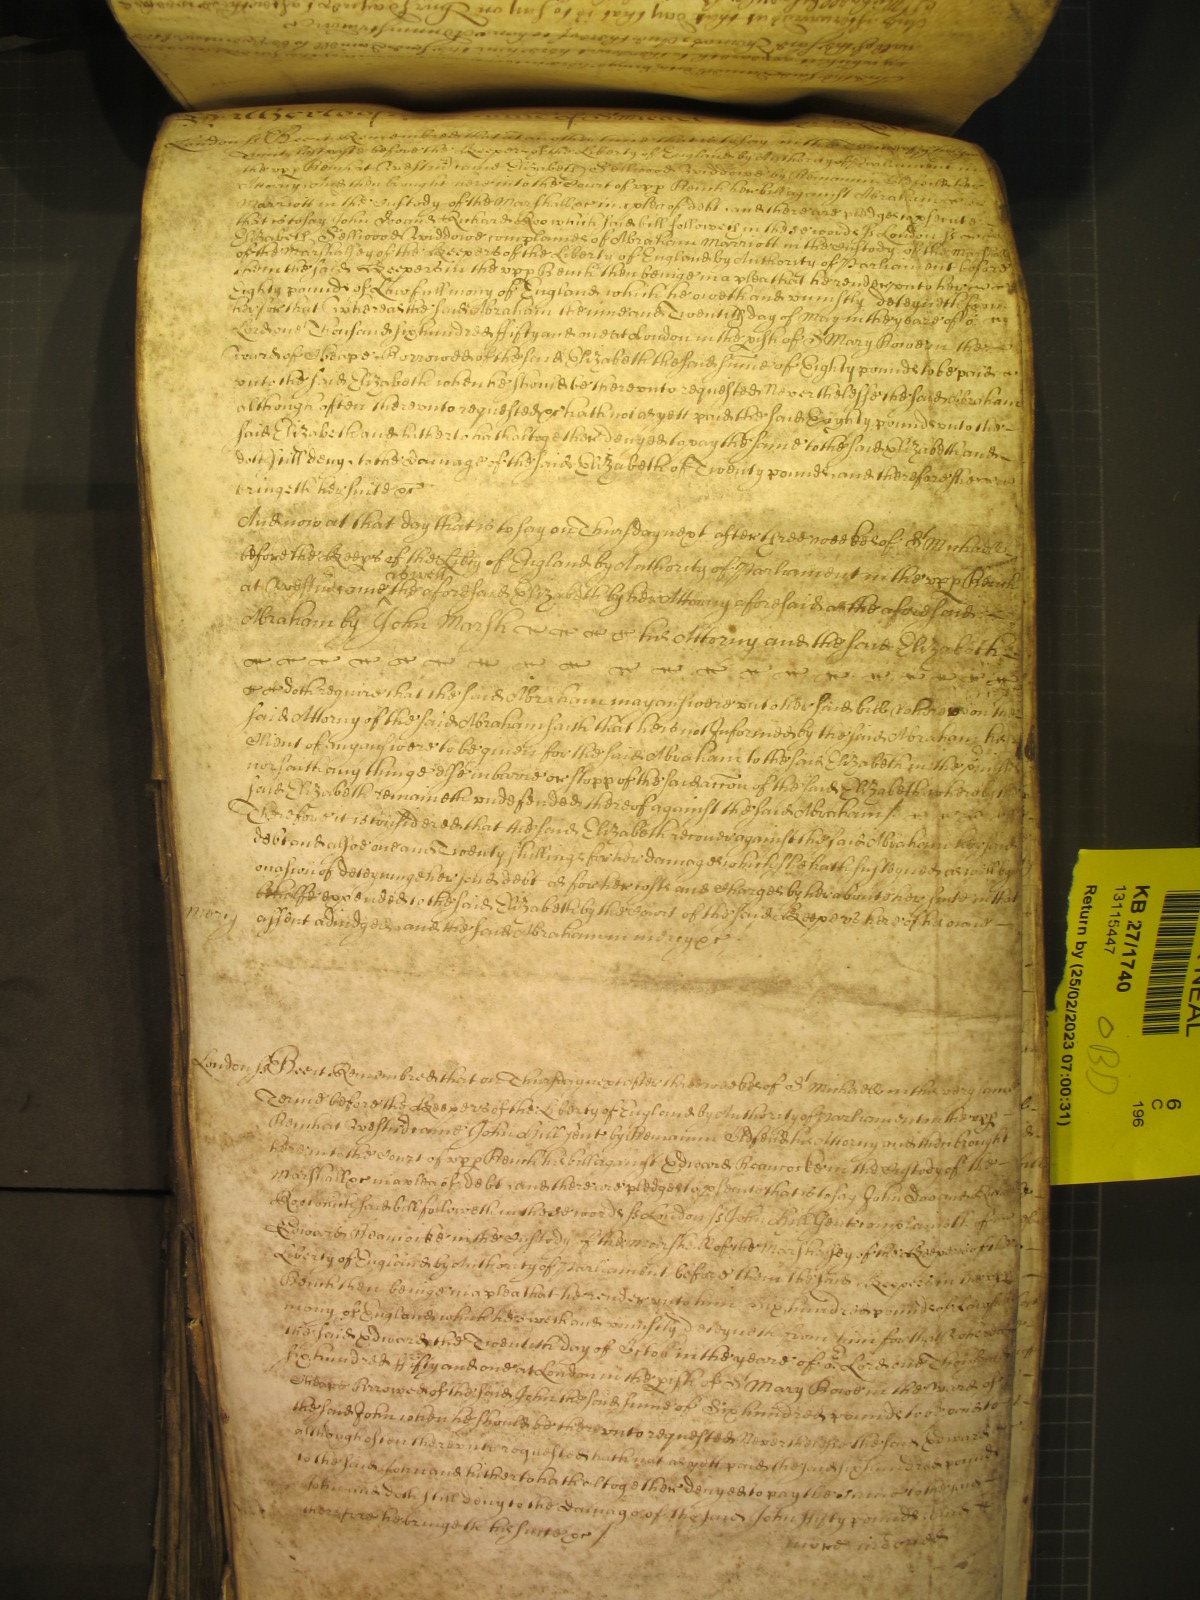 London ss Bee it Remembred that at another time that is to say on
Trinity last past before the Keepers of the Liberty of England by Authority of Parliament in
the upp Bench at Westmr came Elizabeth Widdowe by Beniamin her
Attorny and then brought here into the Court of upp Bench her bill against Abraham
Marriott in the Custody of the Marshall &c in a plea of debt and there are pledges to psecute
that is to say John Doe and Richard Roe which said bill followeth in these words ss London ss
Elizabeth Widdowe complaines of Abraham Marriott in the Custody of the Marshall
of the Marshalsey of the Keepers of the Liberty of England by Authority of Parliament before
them the said Keepers in the upp Bench then beinge in a plea that he render unto her
Eighty pounds of Lawfull mony of England which he oweth and uniustly deteyneth from
her for that Whereas the said Abraham the one and Twentith day of May in the yeare of or
Lord one Thousand six hundred fifty and one at London in the pish of St Mary Bowe in the
Ward of Cheape Borrowed of the said Elizabeth the said sume of Eighty pounds to be paid
unto the said Elizabeth when he should be thereunto requested Neverthelesse the said Abraham
although often thereunto requested &c hath not as yett paid the said Eighty pounds unto the
said Elizabeth and hitherto hath altogether denyed to pay the same to the said Elizabeth and
doth still deny to the damage of the said Elizabeth of Twenty pounds and therefore shee
bringeth her suite &c
And now at that day that is to say on Thursday next after three weekes of St Michael
before the Keeps of the Libty of England by Authority of Parliament in the upp Bench
at Westmr come aswell the aforesaid Elizabeth by her Attorny aforesaid as the aforesaid
Abraham by John Marsh his Attorny and the said Elizabeth
doth require that the said Abraham may answere unto her said bill whereupon the
said Attorny of the said Abraham saith that he is not Informed by the said Abraham his
Client of any answere to be given for the said Abraham to the said Elizabeth in the
nor saith any thinge else in barre or stopp of the said accon of the said Elizabeth whereby the
said Elizabeth remaineth undefended thereof against the said Abraham
Therefore it is considered that the said Elizabeth recover against the said Abraham her said
debt and alsoe one and Twenty shillings for her damages which she hath susteyned as well by
occasion of deteyninge her said debt as for her costs and charges by her about her suite in that
behalfe expended to the said Elizabeth by the Court of the said Keepers here of her owne
Mercy
assent adiudged and the said Abraham in mercy &c
London ss Bee it Remembred that on Thursday next after three weekes of St Michaell in this very same
Terme before the Keepers of the Liberty of England by Authority of Parliament in the upp
Bench at Westmr came John Hill gent by Beniamin his Attorny and then brought
here into the Court of upp Bench his bill against Edward Heancocke in the Custody of the
Marshall &c in a plea of debt and there are pledges to psecute that is to say John Doe and Richard
Roe which said bill followeth in these words ss London ss John Hill Gent complaineth of
Edward Heancocke in the Custody of the Marshall of the Marshalsey of the Keepers of the
Liberty of England by Authority of Parliament before them the said Keepers in the upp
Bench then beinge in a plea that he render unto him Six hundred pounds of Lawfull
mony of England which he oweth and uniustly deteyneth from him for that Whereas
the said Edward the Twentith day of in the yeare of or Lord one Thousand
six hundred fifty and one at London in the pish of St Mary Bowe in the Ward of
Cheape Borrowed of the said John the said sume of Six hundred pounds to be paid to
the said John when he should be thereunto requested Neverthelesse the said Edward
although often thereunto requested hath not as yett paid the said six hundred pounds
to the said John and hitherto hath altogether denyed to pay the same to the said
John and doth still deny to the damage of the said John fifty pounds and
therefore he bringeth his suite &c
KB 27/1740
13115447
Return by (25/02/2023 07:00:31)
6
C
196
OBD
NEAL